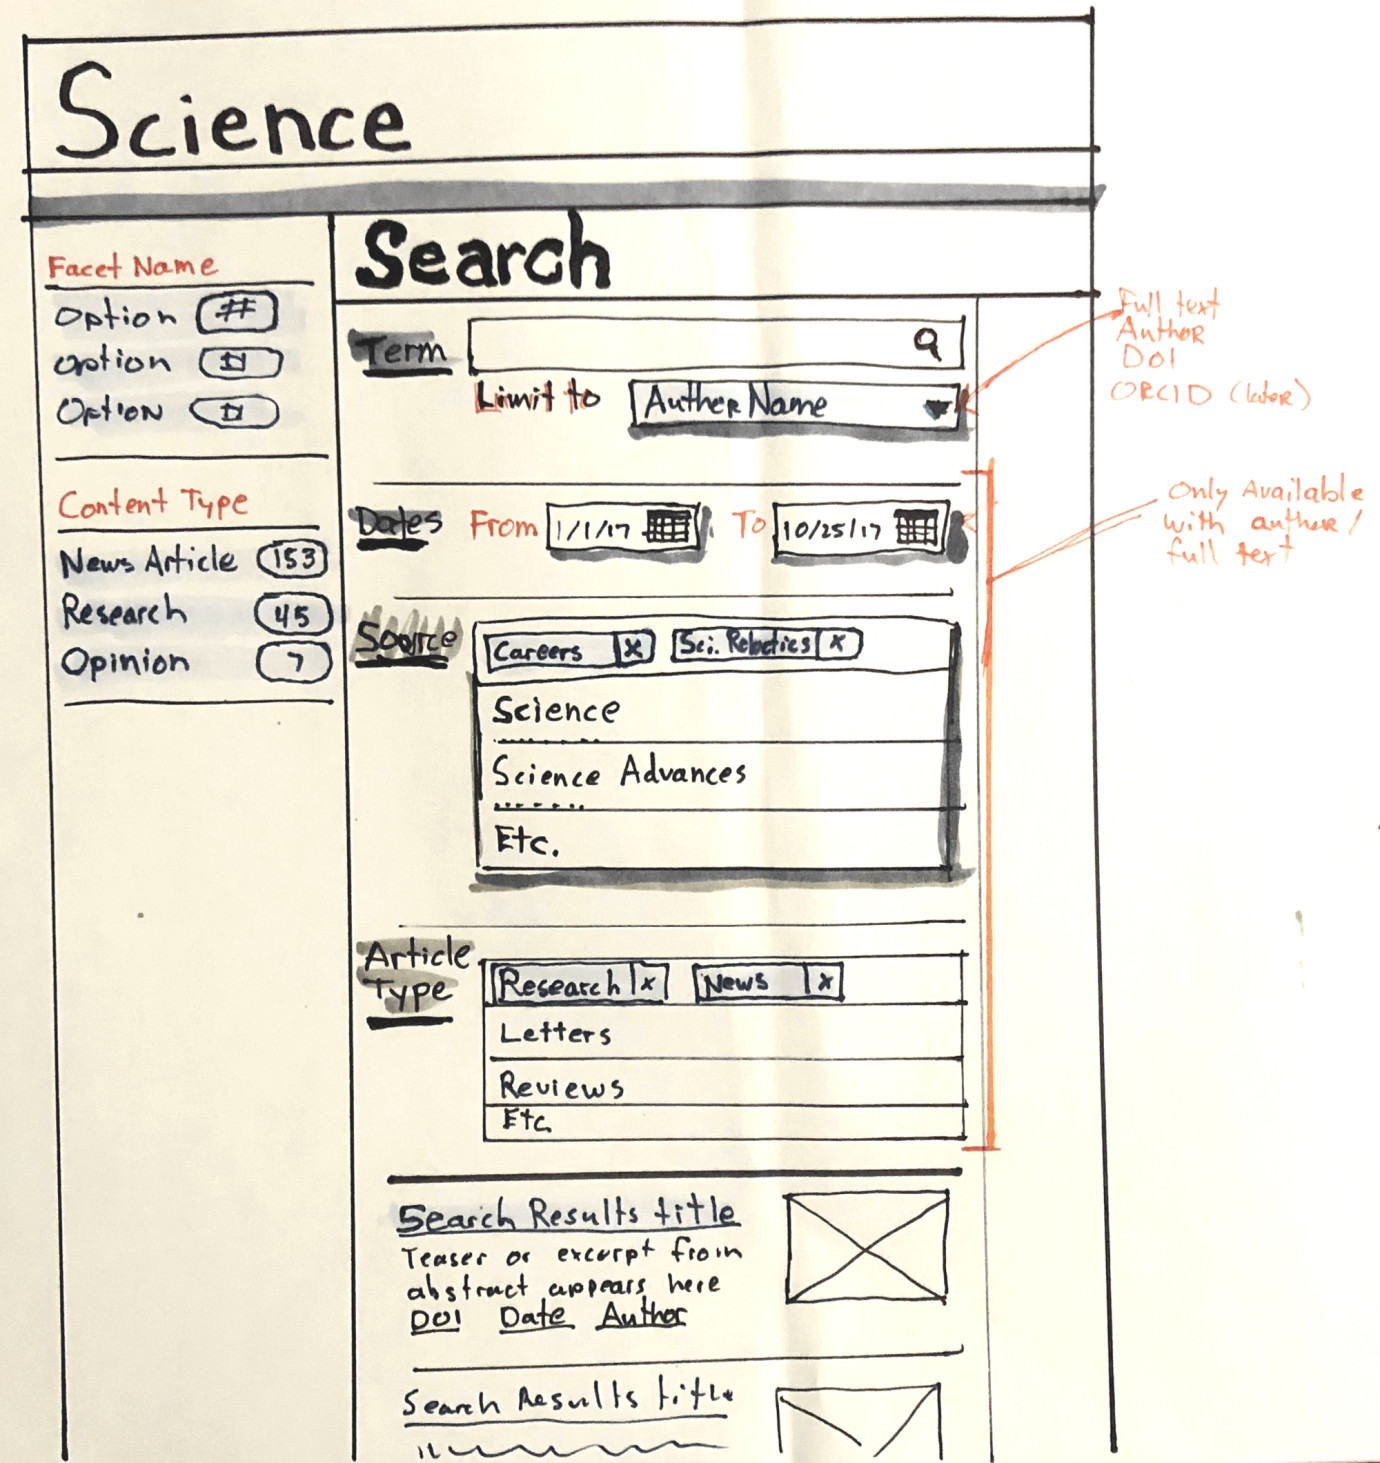 Science
Search
Facet Name
Option #
Option #
Option #
Content Type
News Article 153
Research 45
Opinion 7
Term
Limit to Auther Name
Full text
Author
DOI
ORCID (later)
Dates From 1/1/17 To 10/25/17
Only Available
with auther/
full text
Source
Careers x Sci. Robotics x
Science
Science Advances
Etc.
Article
Type
Research x News x
Letters
Reviews
Etc
Search Results title
Teaser or excerpt from
abstract appears here
DOI Date Author
Search Results title